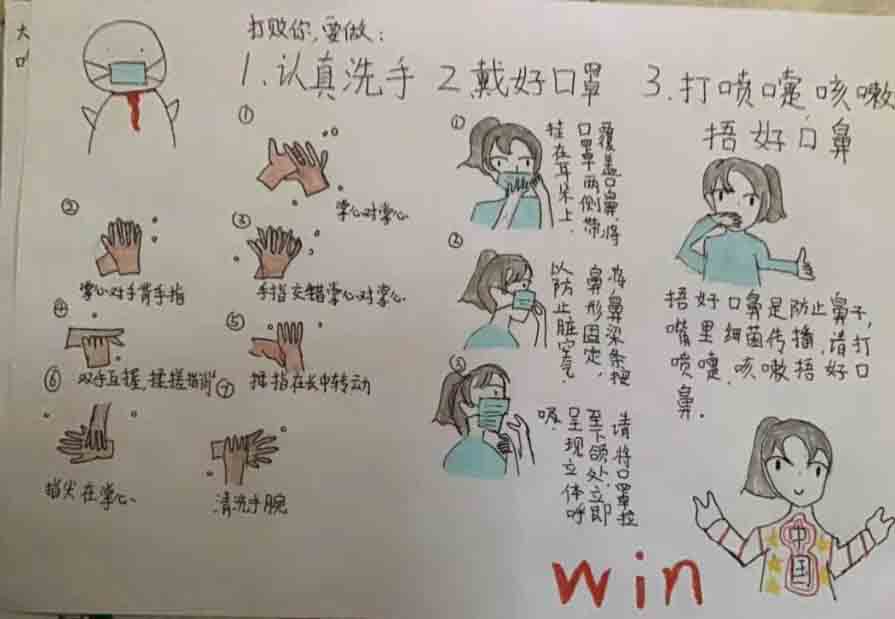 大
口
打败你,要做:
1.认真洗手
①
掌心对掌心
②
掌心对手背手指
③
手指交错掌心对掌心.
④
双手互握,揉搓指背
⑤
拇指在长中转动
⑥
指尖在掌心.
⑦
清洗手腕
2.戴好口罩
①
覆盖口鼻,将
口罩两侧带
挂在耳朵上.
②
将鼻梁条按
鼻形固定,
以防止脏空气
③
请将口罩拉
至下颌处,立即
呈现立体呼
吸.
3.打喷嚏,咳嗽
捂好口鼻
捂好口鼻是防止鼻子,
嘴里细菌传播,请打
喷嚏,咳嗽捂好口
鼻.
中
国
win